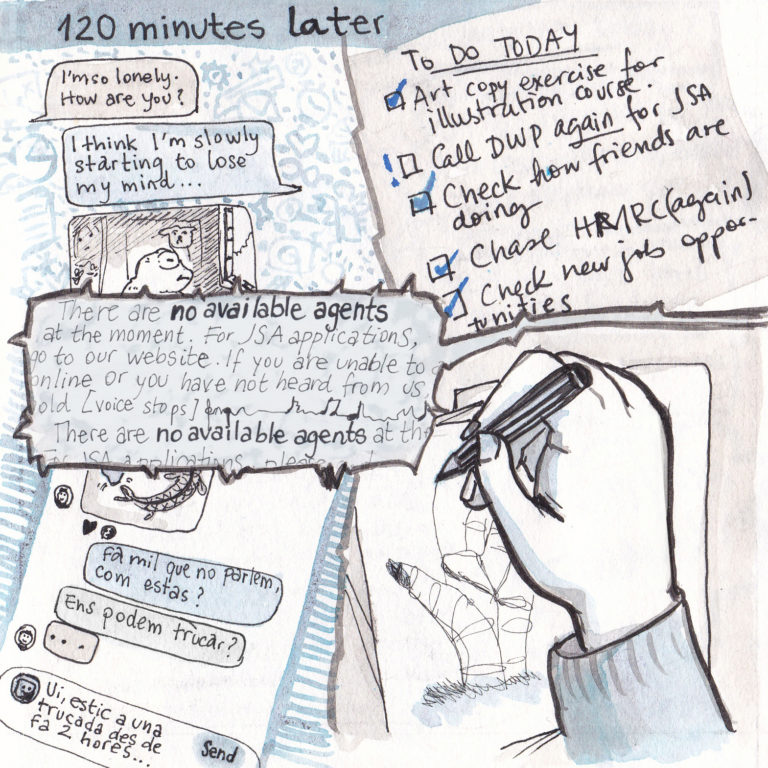 120 minutes later
I'm so lonely.
How are you?
I think I'm slowly
starting to lose
my mind...
TO DO TODAY
Art copy exercise for
illustration course.
! Call DWP again for JSA
Check how friends are
doing
Chase HMRC (again)
Check new job oppor-
tunities
There are no available agents
at the moment. For JSA applications,
go to our website. If you are unable to
online or you have not heard from us
old [voice stops]
There are no available agents at th
For JSA applications, please
Fa mil que no parlem,
com estas?
Ens podem trucar?
...
Ui, estic a una
trucada des de
fa 2 hores...
Send